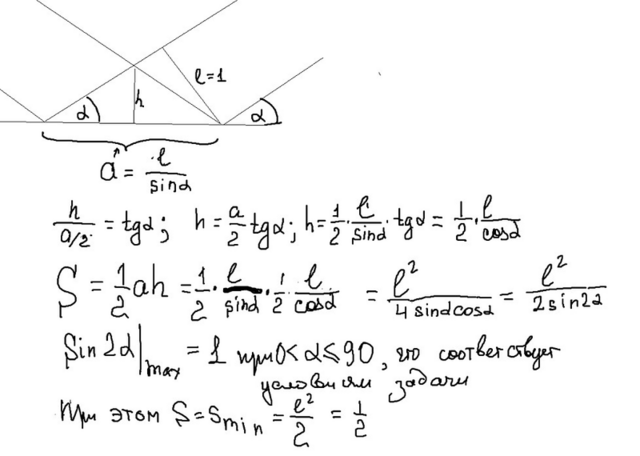 l=1
α h α
a = l/sinα
h/(a/2) = tgα; h = a/2 tgα; h = 1/2 · l/sinα · tgα = 1/2 · l/cosα
S = 1/2 ah = 1/2 · l/sinα · 1/2 · l/cosα = l²/(4 sinα cosα) = l²/(2 sin2α)
Sin2α|max = 1 при 0 < α ≤ 90, что соответствует
условиям задачи
При этом S = Smin = l²/2 = 1/2